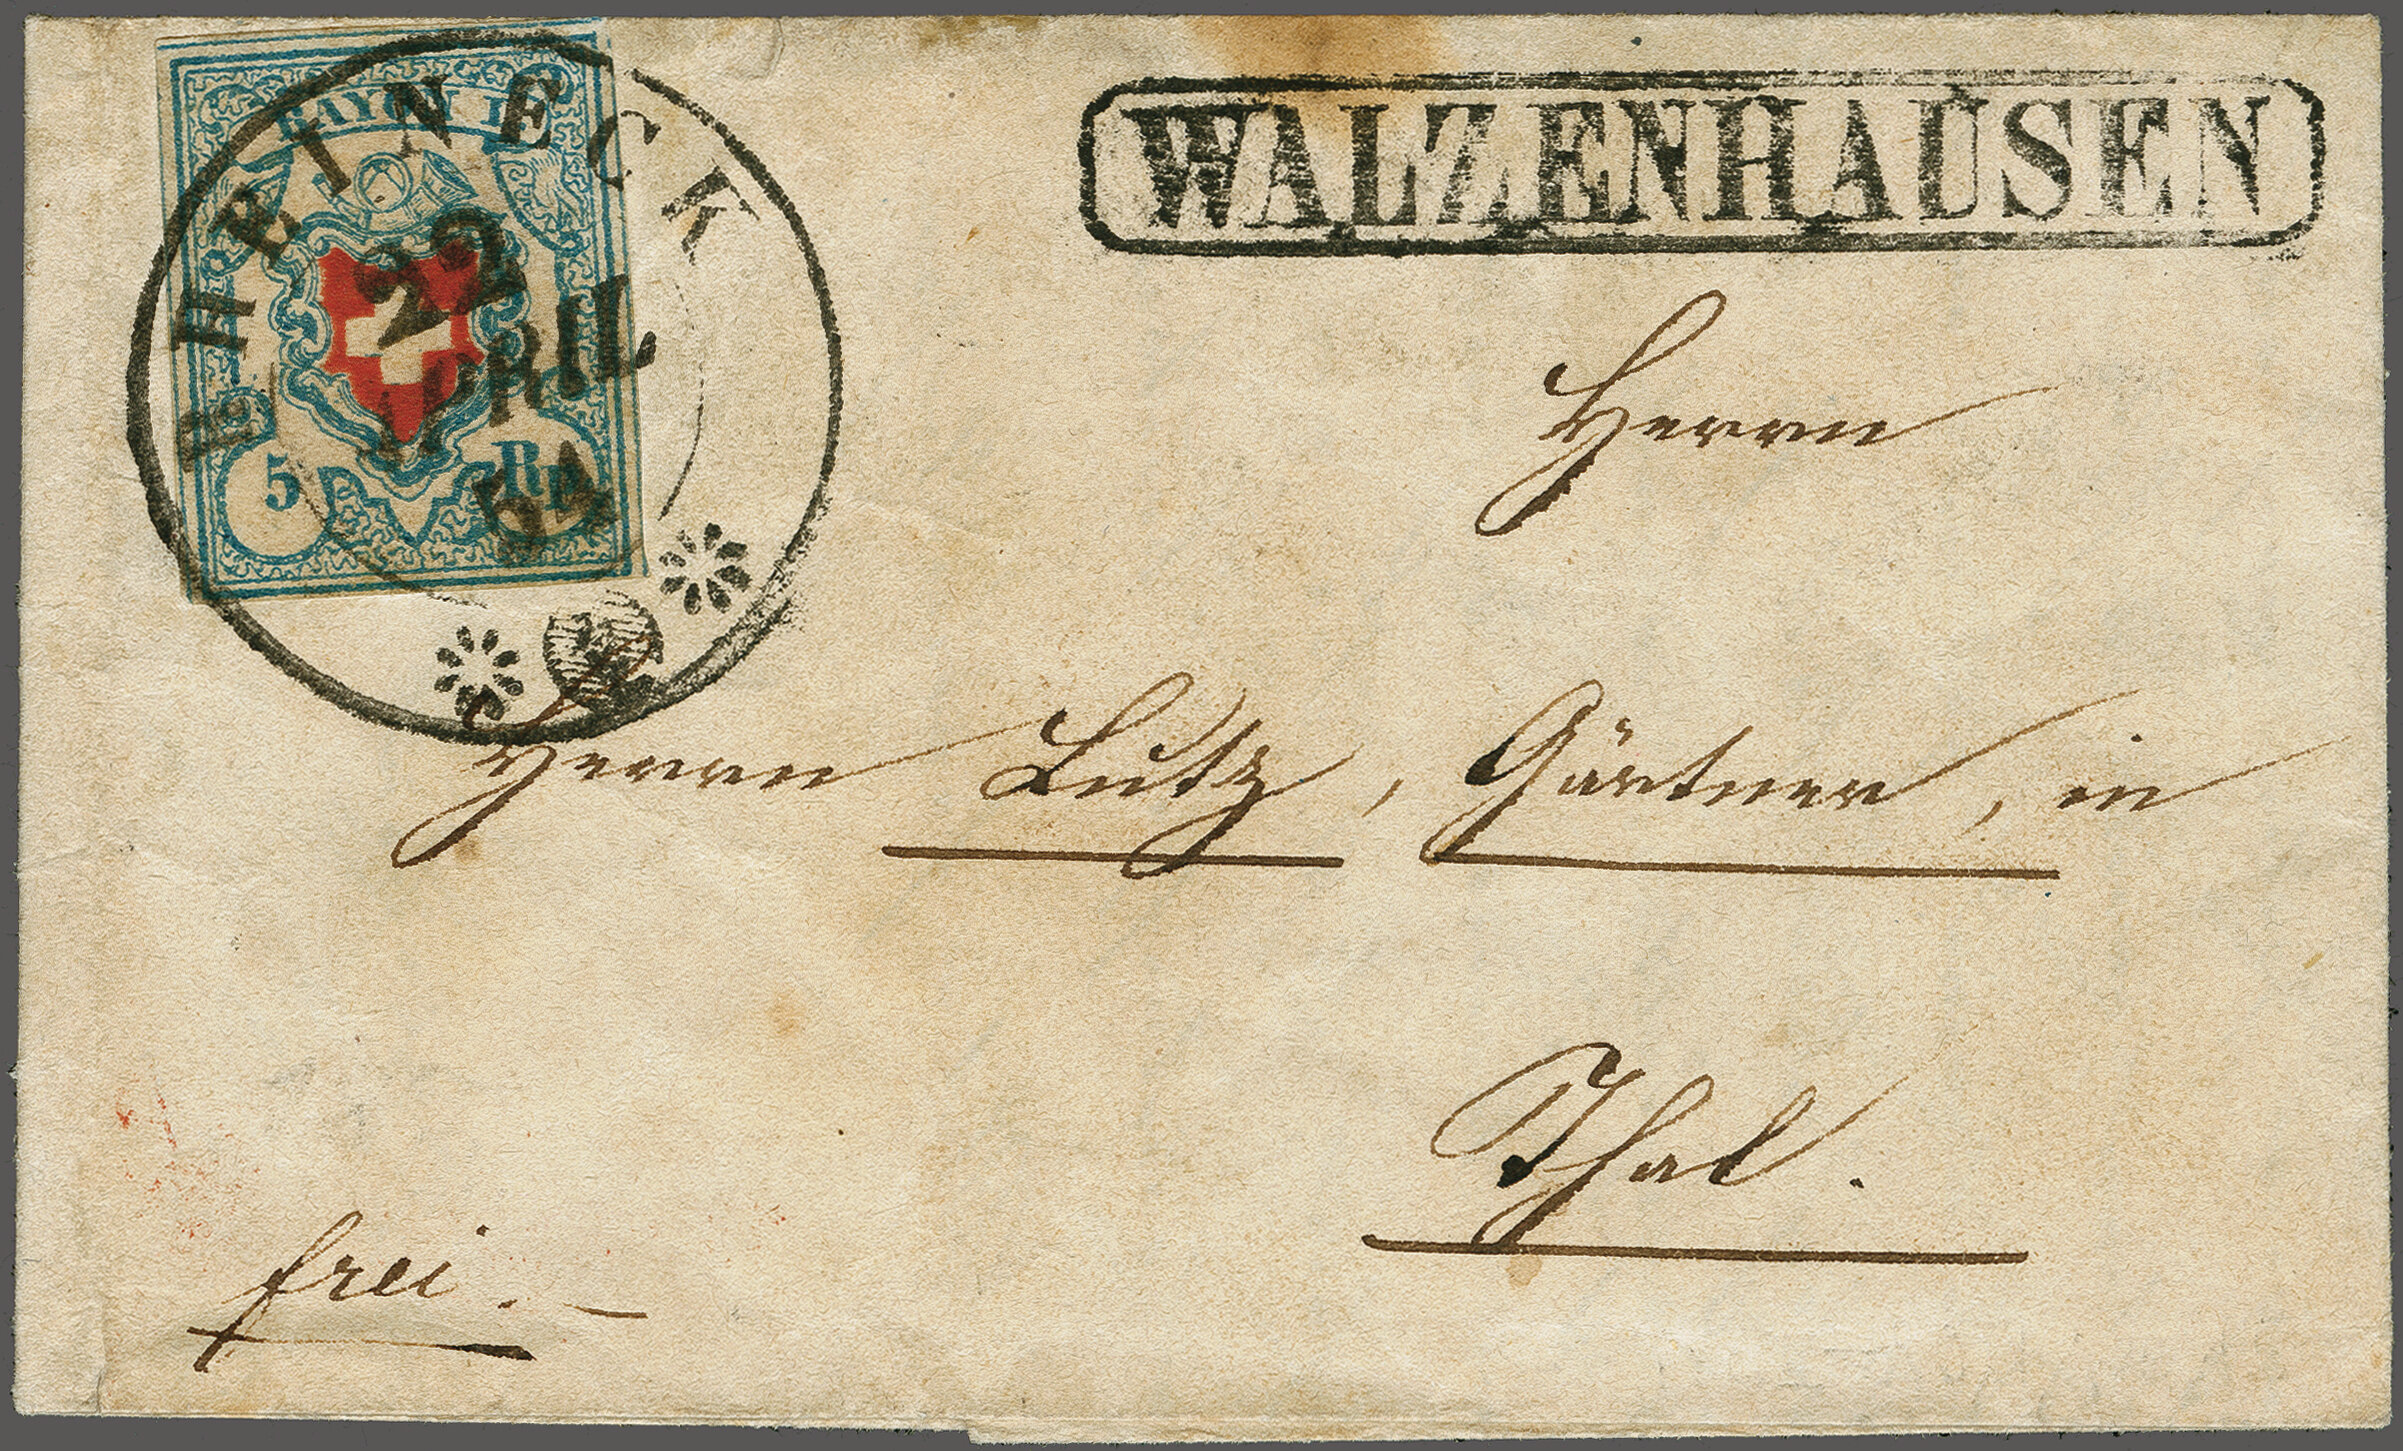 RHEINECK
22
APRIL
54
RAYON I.
5 Rp.
WALZENHAUSEN
Herrn
Herrn Lutz, Gärtner, in
Thal.
frei. –